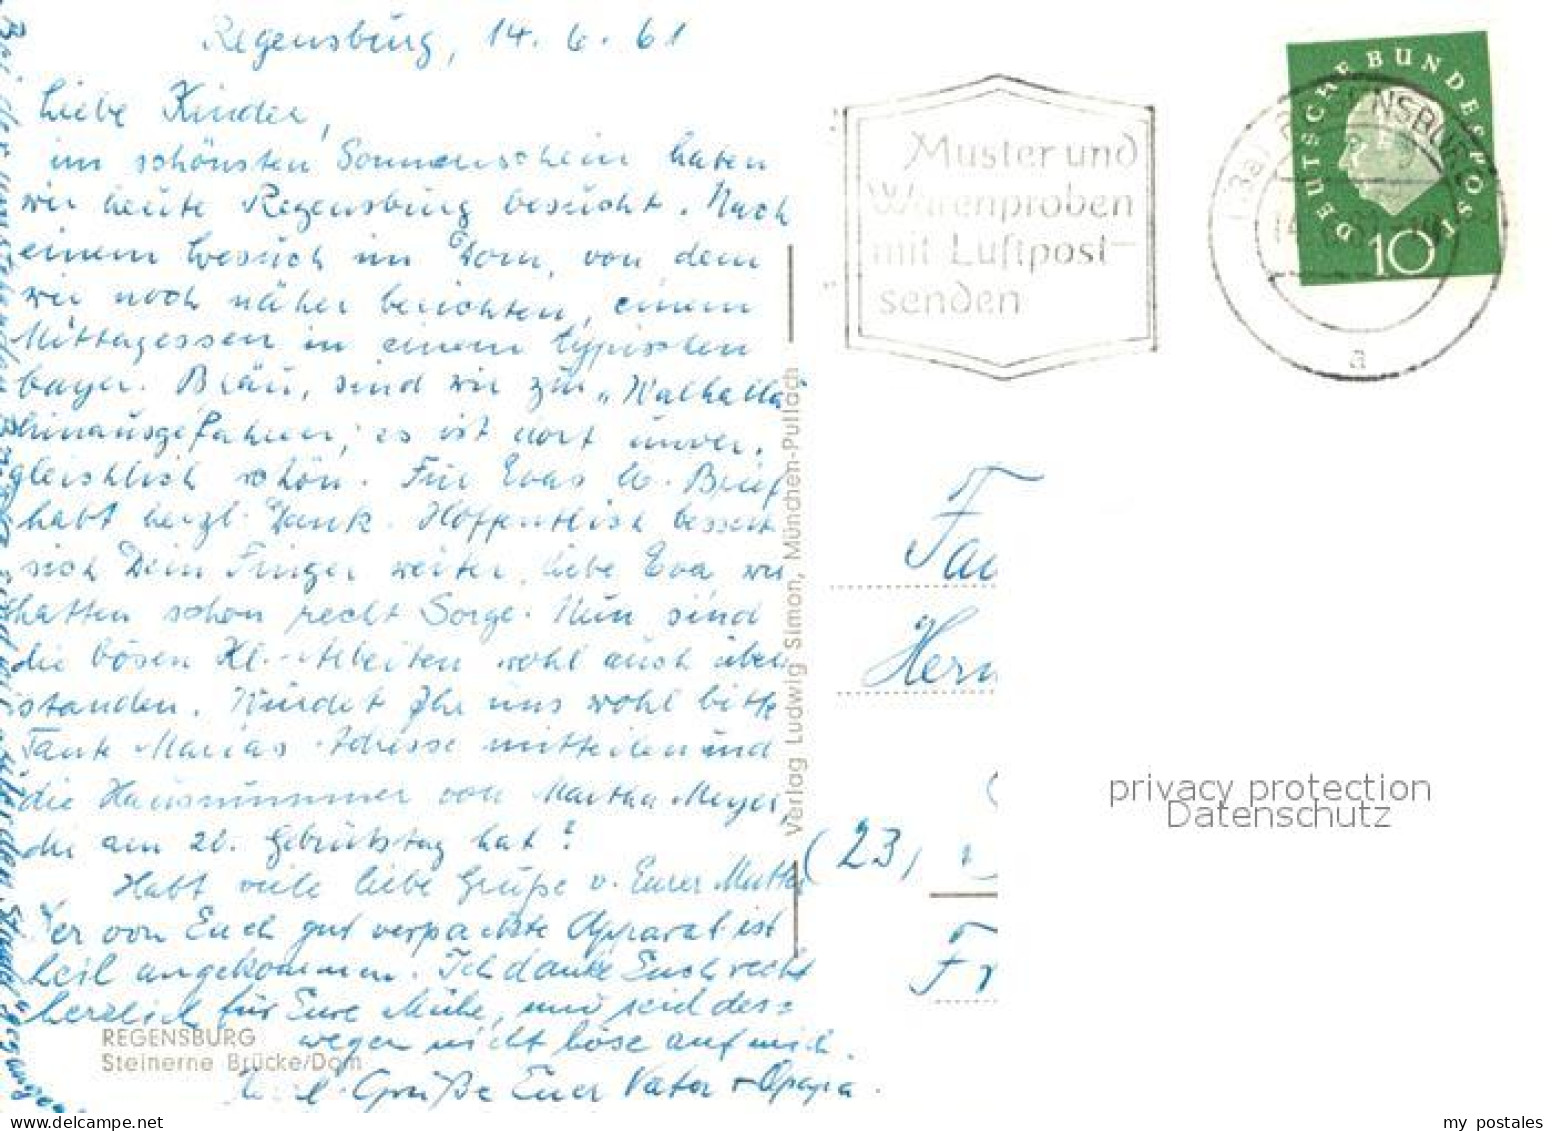 Regensburg, 14. 6. 61
Liebe Kinder,
im schönsten Sonnenschein haben
wir heute Regensburg besucht. Nach
einem Besuch im Dom, von dem
wir noch näher berichten, einem
Mittagessen in einem typischen
bayer. Bräu, sind wir zur "Walhalla"
hinausgefahren; es ist dort unver-
gleichlich schön. Für Evas lb. Brief
habt herzl. Dank. Hoffentlich bessert
sich Dein Finger weiter, liebe Eva, wir
hatten schon recht Sorge. Nun sind
die bösen Kl.-Arbeiten wohl auch über
standen. Würdet Ihr uns wohl bitte
Tante Marias Adresse mitteilen und
die Hausnummer von Martha Meyer,
die am 20. Geburtstag hat?
Habt viele liebe Grüße v. Eurer Mutter
Der von Euch gut verpackte Apparat ist
heil angekommen. Ich danke Euch recht
herzlich für Eure Mühe, und seid des=
wegen nicht böse auf mich.
Herzl. Grüße Euer Vater + Opapa.
REGENSBURG
Steinerne Brücke/Dom
Verlag Ludwig Simon, München-Pullach
Muster und
Warenproben
mit Luftpost-
senden
DEUTSCHE BUNDESPOST
10
REGENSBURG
a
Fam
Herm
(23)
Fr
privacy protection
Datenschutz
my postales